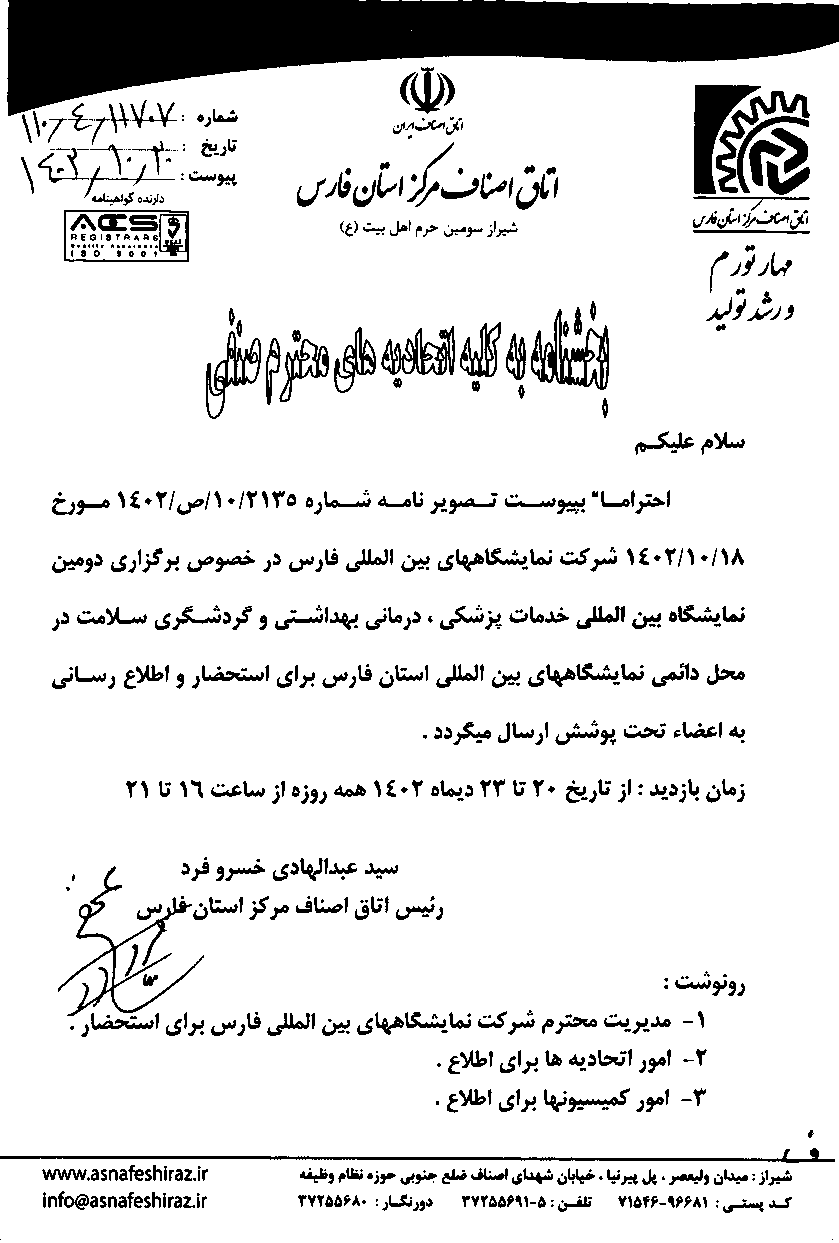 اتاق اصناف ایران
اتاق اصناف مرکز استان فارس
شیراز سومین حرم اهل بیت (ع)
شماره : ۱۱۰/٤/۱۱۷۰۷
تاریخ :
۱٤۰۲/۱۰/۲۰
پیوست :
دارنده گواهینامه
ACS
REGISTRARS
Quality Assurance
ISO 9001
اتاق اصناف مرکز استان فارس
مهار تورم
و رشد تولید
بخشنامه به کلیه اتحادیه های محترم صنفی
سلام علیکـم
احترامـا" بپیوسـت تـصویر نامـه شـماره ۱٤۰۲/ص/۱۰/۲۱۳۵ مـورخ
۱٤۰۲/۱۰/۱۸ شرکت نمایشگاههای بین المللی فارس در خصوص برگزاری دومین
نمایشگاه بین المللی خدمات پزشکی ، درمانی بهداشـتی و گردشـگری سـلامت در
محل دائمی نمایشگاههای بین المللی استان فارس برای استحضار و اطلاع رسـانی
به اعضاء تحت پوشش ارسال میگردد .
زمان بازدید : از تاریخ ۲۰ تا ۲۳ دیماه ۱٤۰۲ همه روزه از ساعت ۱٦ تا ۲۱
سید عبدالهادی خسرو فرد
رئیس اتاق اصناف مرکز استان فارس
رونوشت :
۱- مدیریت محترم شرکت نمایشگاههای بین المللی فارس برای استحضار .
۲- امور اتحادیه ها برای اطلاع .
۳- امور کمیسیونها برای اطلاع .
شیراز : میدان ولیعصر ، پل پیرنیا ، خیابان شهدای اصناف ضلع جنوبی حوزه نظام وظیفه
کـد پستـی : ۹۶۶۸۱-۷۱۵۴۶ تلفـن : ۵-۳۷۲۵۵۶۹۱ دورنگـار : ۳۷۲۵۵۶۸۰
www.asnafeshiraz.ir
info@asnafeshiraz.ir